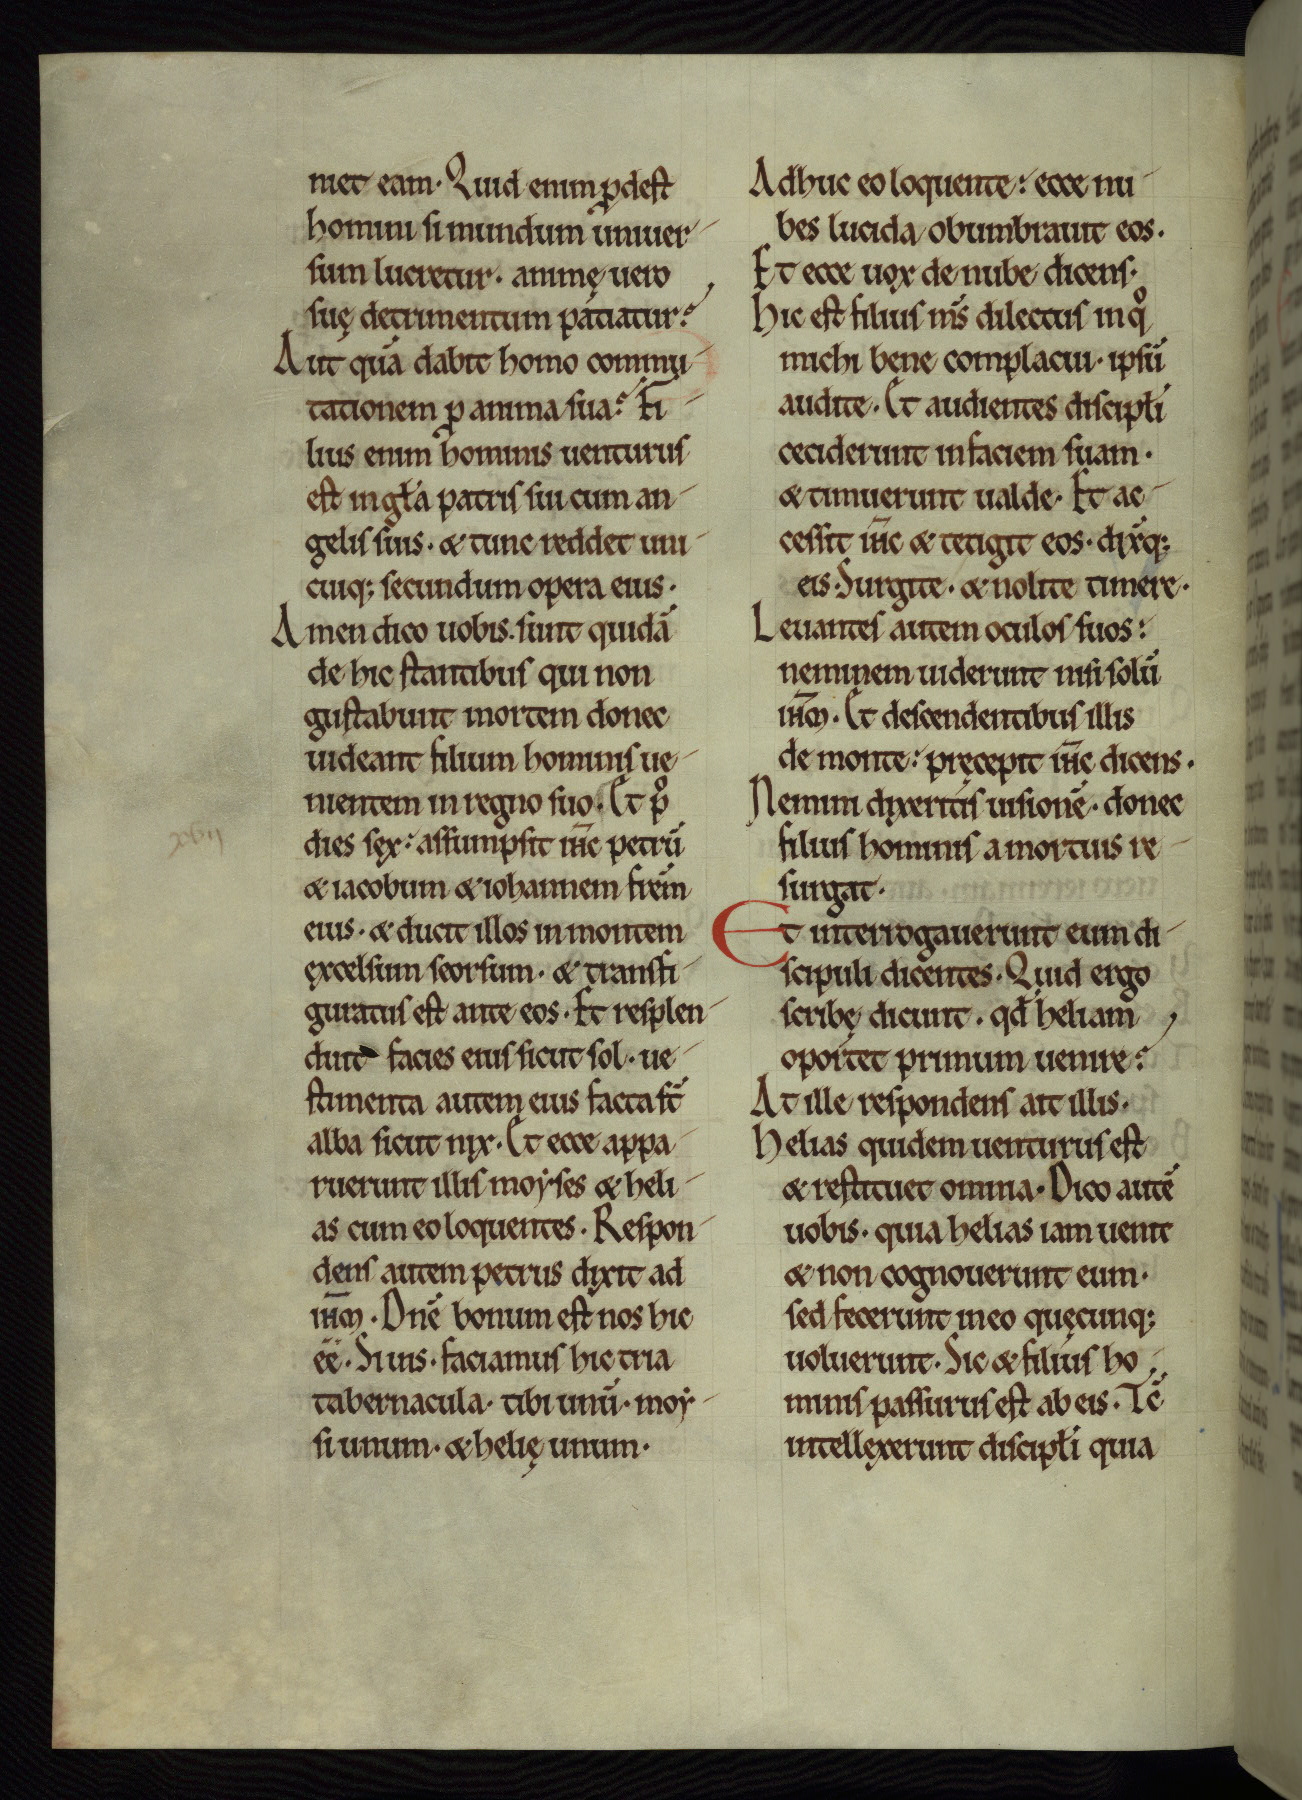 niet eam. Quid enim ꝓdest
homini si mundum uniuer
sum lucretur. animę uero
suę detrimentum patiatur?
Aut quā dabit homo commu
tationem ꝓ anima sua? Fi
lius enim hominis uenturus
est in gła patris sui cum an
gelis suis. & tunc reddet uni
cuiq; secundum opera eius.
Amen dico uobis. sunt quidā
de hic stantibus qui non
gustabunt mortem donec
uideant filium hominis ue
nientem in regno suo. Et pͦ
dies sex: assumpsit ih̄c petrū
& iacobum & iohannem frēm
eius. & ducit illos in montem
excelsum seorsum. & transfi
guratus est ante eos. Et resplen
duit facies eius sicut sol. ue
stimenta autem eius facta st̄
alba sicut nix. Et ecce appa
ruerunt illis moẏses & heli
as cum eo loquentes. Respon
dens autem petrus dixit ad
ih̄m. Dn̄e bonum est nos hic
ēē. Si uis. faciamus hic tria
tabernacula. tibi unū. moẏ
si unum. & helię unum.
Adhuc eo loquente: ecce nu
bes lucida obumbrauit eos.
Et ecce uox de nube dicens.
Hic est filius m̄s dilectus in qͦ
michi bene complacui. ipsū
audite. Et audientes discipłi
ceciderunt in faciem suam.
& timuerunt ualde. Et ac
cessit ih̄c & tetigit eos. dix̄q;
eis. Surgite. & nolite timere.
Leuantes autem oculos suos:
neminem uiderunt nisi solū
ih̄m. Et descendentibus illis
de monte: pręcepit ih̄c dicens.
Nemini dixeritis uisionē. donec
filius hominis a mortuis re
surgat.
Et interrogauerunt eum di
scipuli dicentes. Quid ergo
scribę dicunt. qđ heliam
oportet primum uenire?
At ille respondens ait illis.
Helias quidem uenturus est
& restituet omnia. Dico autē
uobis. quia helias iam uenit
& non cognouerunt eum.
sed fecerunt in eo quęcunq;
uoluerunt. Sic & filius ho
minis passurus est ab eis. Tc̄
intellexerunt discipłi quia
xvii